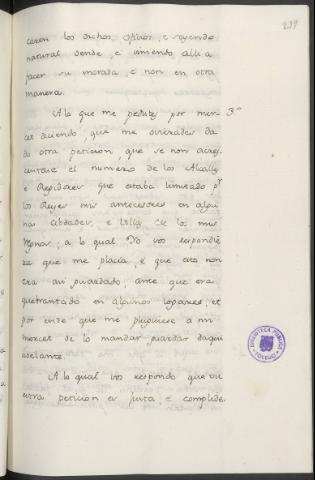 239
caren los dichos oficios, e seyendo
natural dende, e viniendo alli a
facer su morada, e non en otra
manera.
A lo que me pedistes por mer- 3º
ced diciendo, que me ovierades da
do otra peticion, que se non acres
centase el numero de los Alcalles
e Regidores que estaba limitado pr
los Reyes mis antecesores en algu
nas cibdades, e villas de los mis
Regnos; a lo qual Yo vos respondie
ra que me placia, e que esto non
era asi guardado, ante que era
quebrantado en algunos logares, et
por ende que me pluguiese a mi
merced de lo mandar guardar daqui
adelante.
A lo qual vos respondo que vu
estra peticion es justa, e complide
BIBLIOTECA PUBLICA
TOLEDO